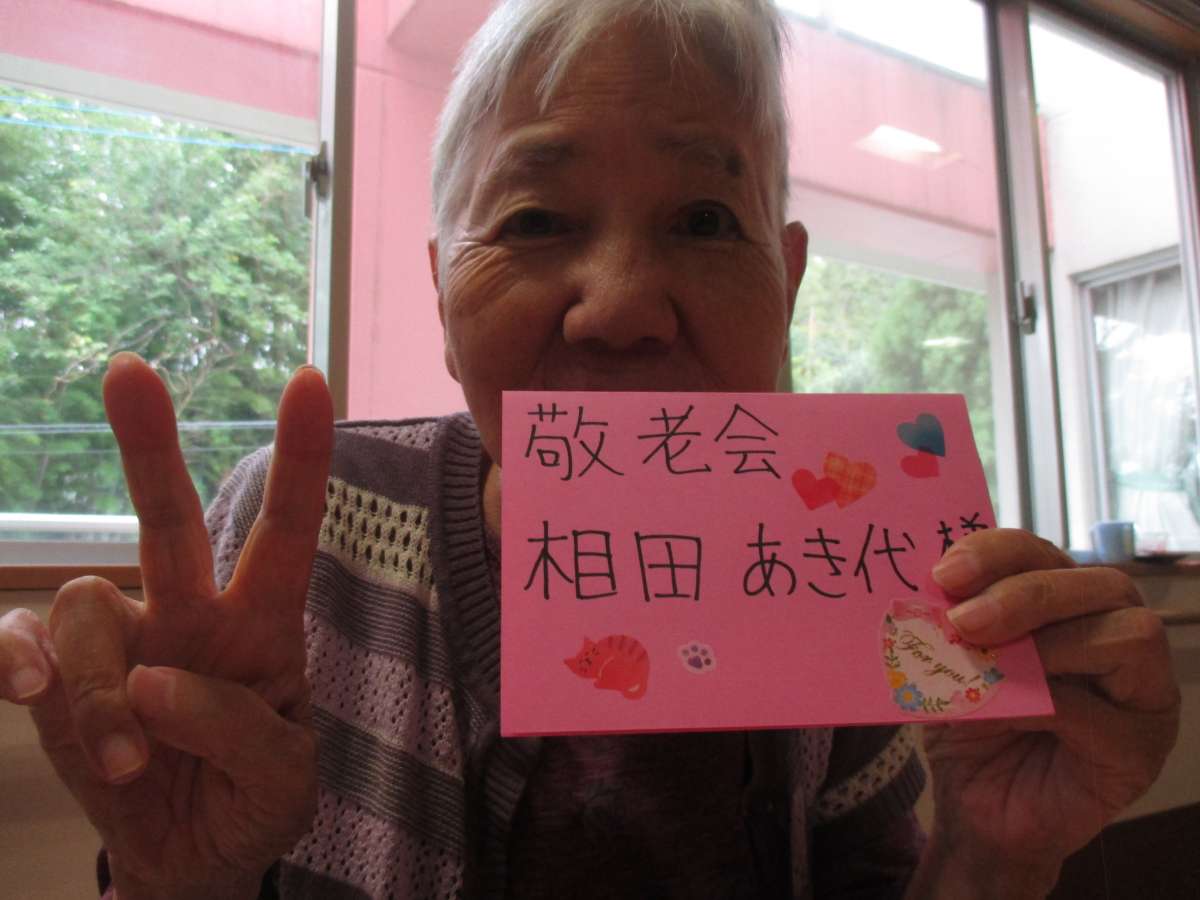 敬老会
相田 あき代 様
For you!